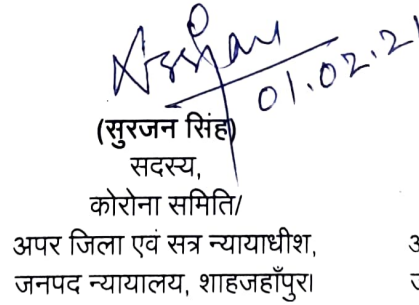 01.02.21
(सुरजन सिंह)
सदस्य,
कोरोना समिति/
अपर जिला एवं सत्र न्यायाधीश,
जनपद न्यायालय, शाहजहाँपुर।